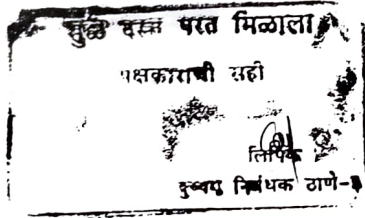 मुळ दस्त परत मिळाला
पक्षकाराची सही
लिपिक
दुय्यम निबंधक ठाणे-